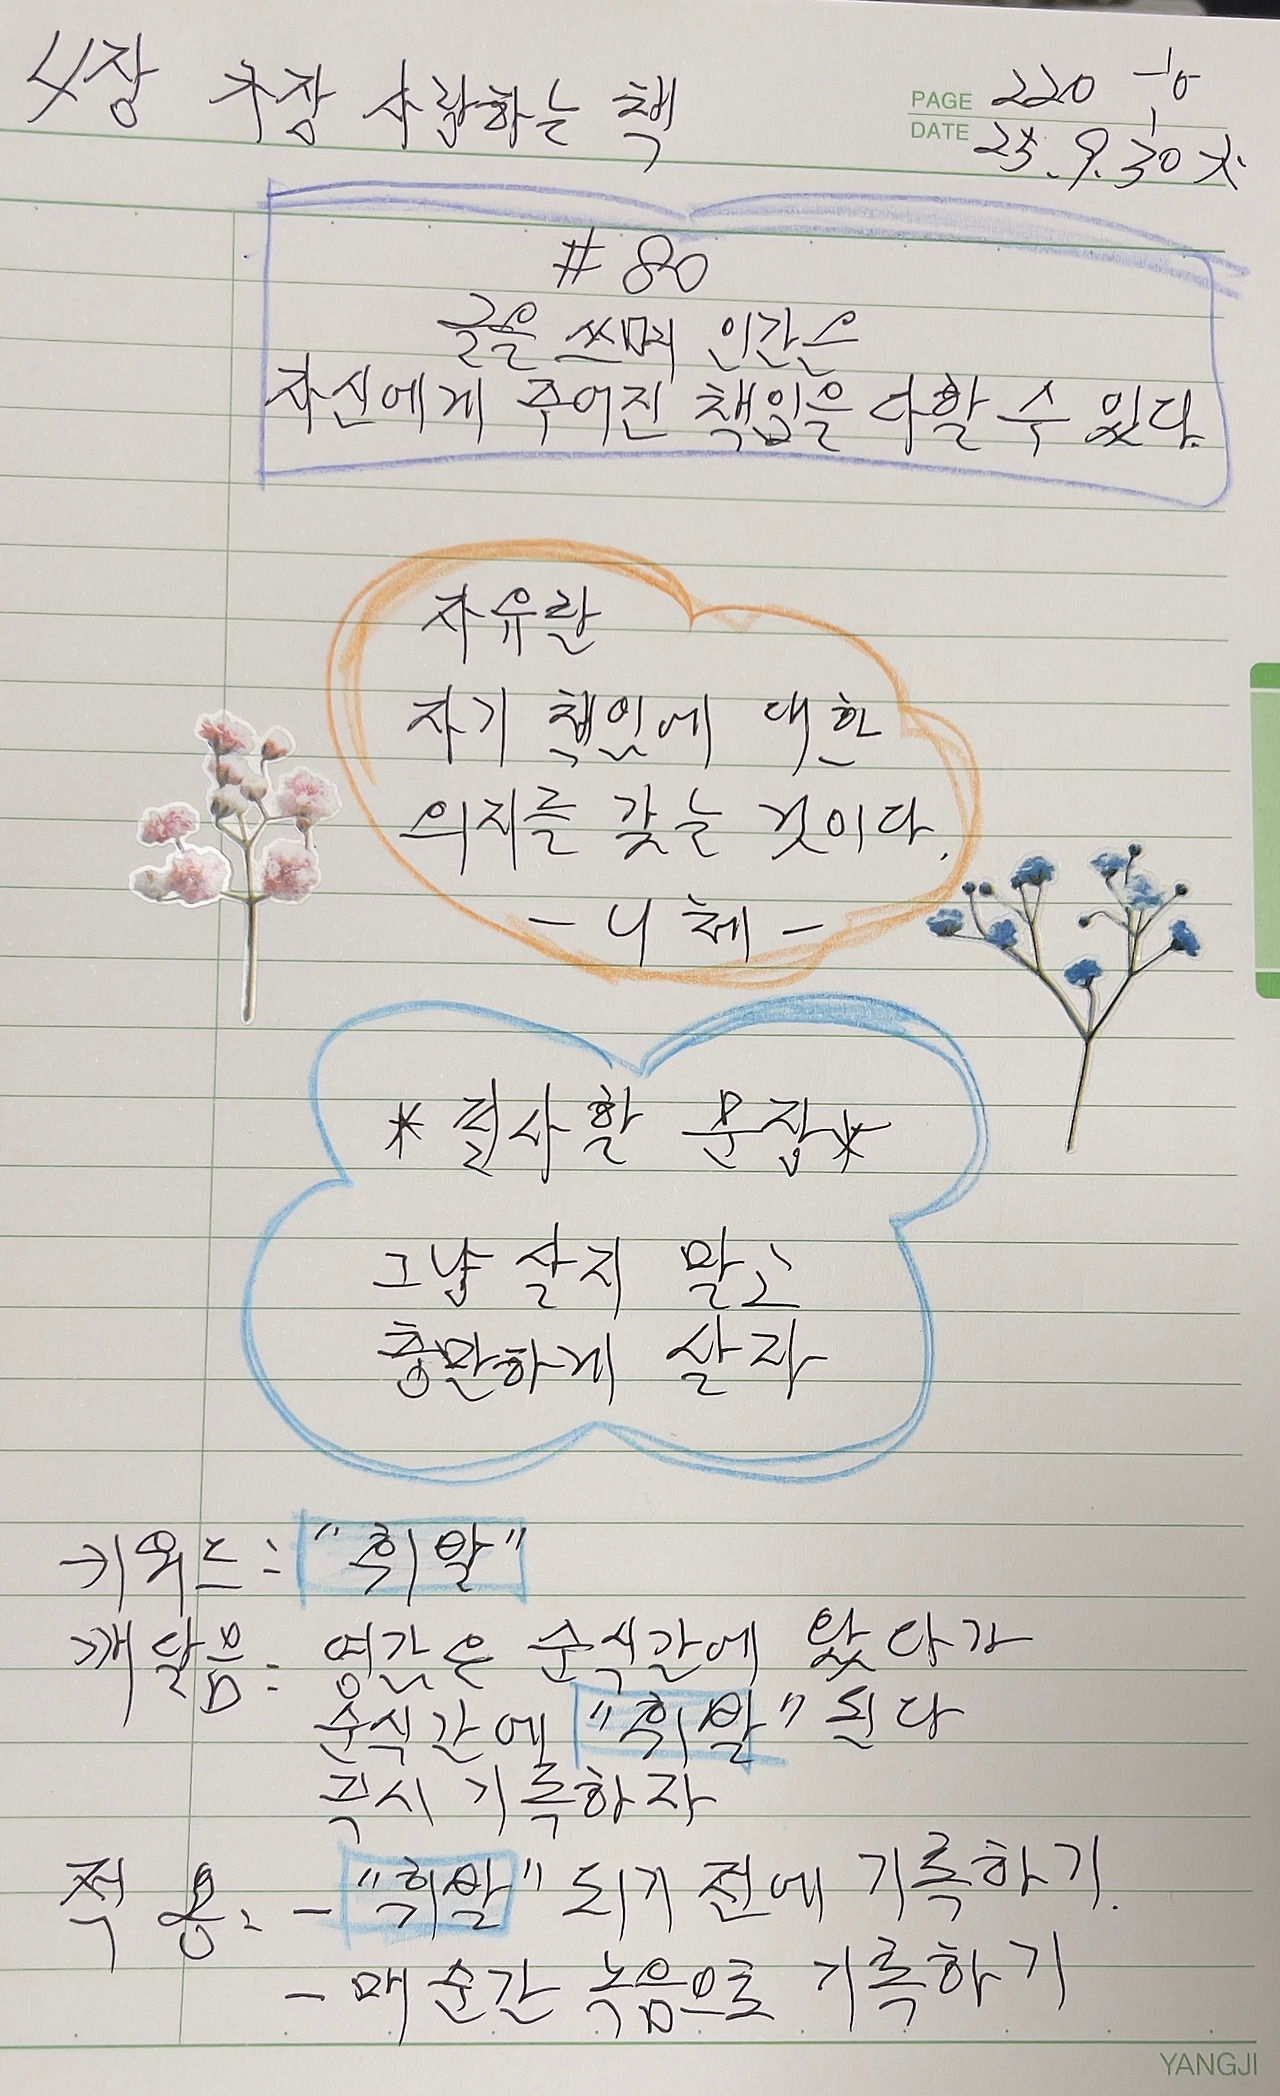 4장 가장 사랑하는 책
PAGE 220
DATE 25.9.30 火
# 80
글을 쓰며 인간은
자신에게 주어진 책임을 다할 수 있다.
자유란
자기 책임에 대한
의지를 갖는 것이다.
- 니체 -
*필사할 문장*
그냥 살지 말고
충만하게 살자
키워드: "휘발"
깨달음: 영감은 순식간에 왔다가
순식간에 "휘발" 된다
즉시 기록하자
적용: - "휘발" 되기 전에 기록하기.
- 매순간 녹음으로 기록하기
YANGJI